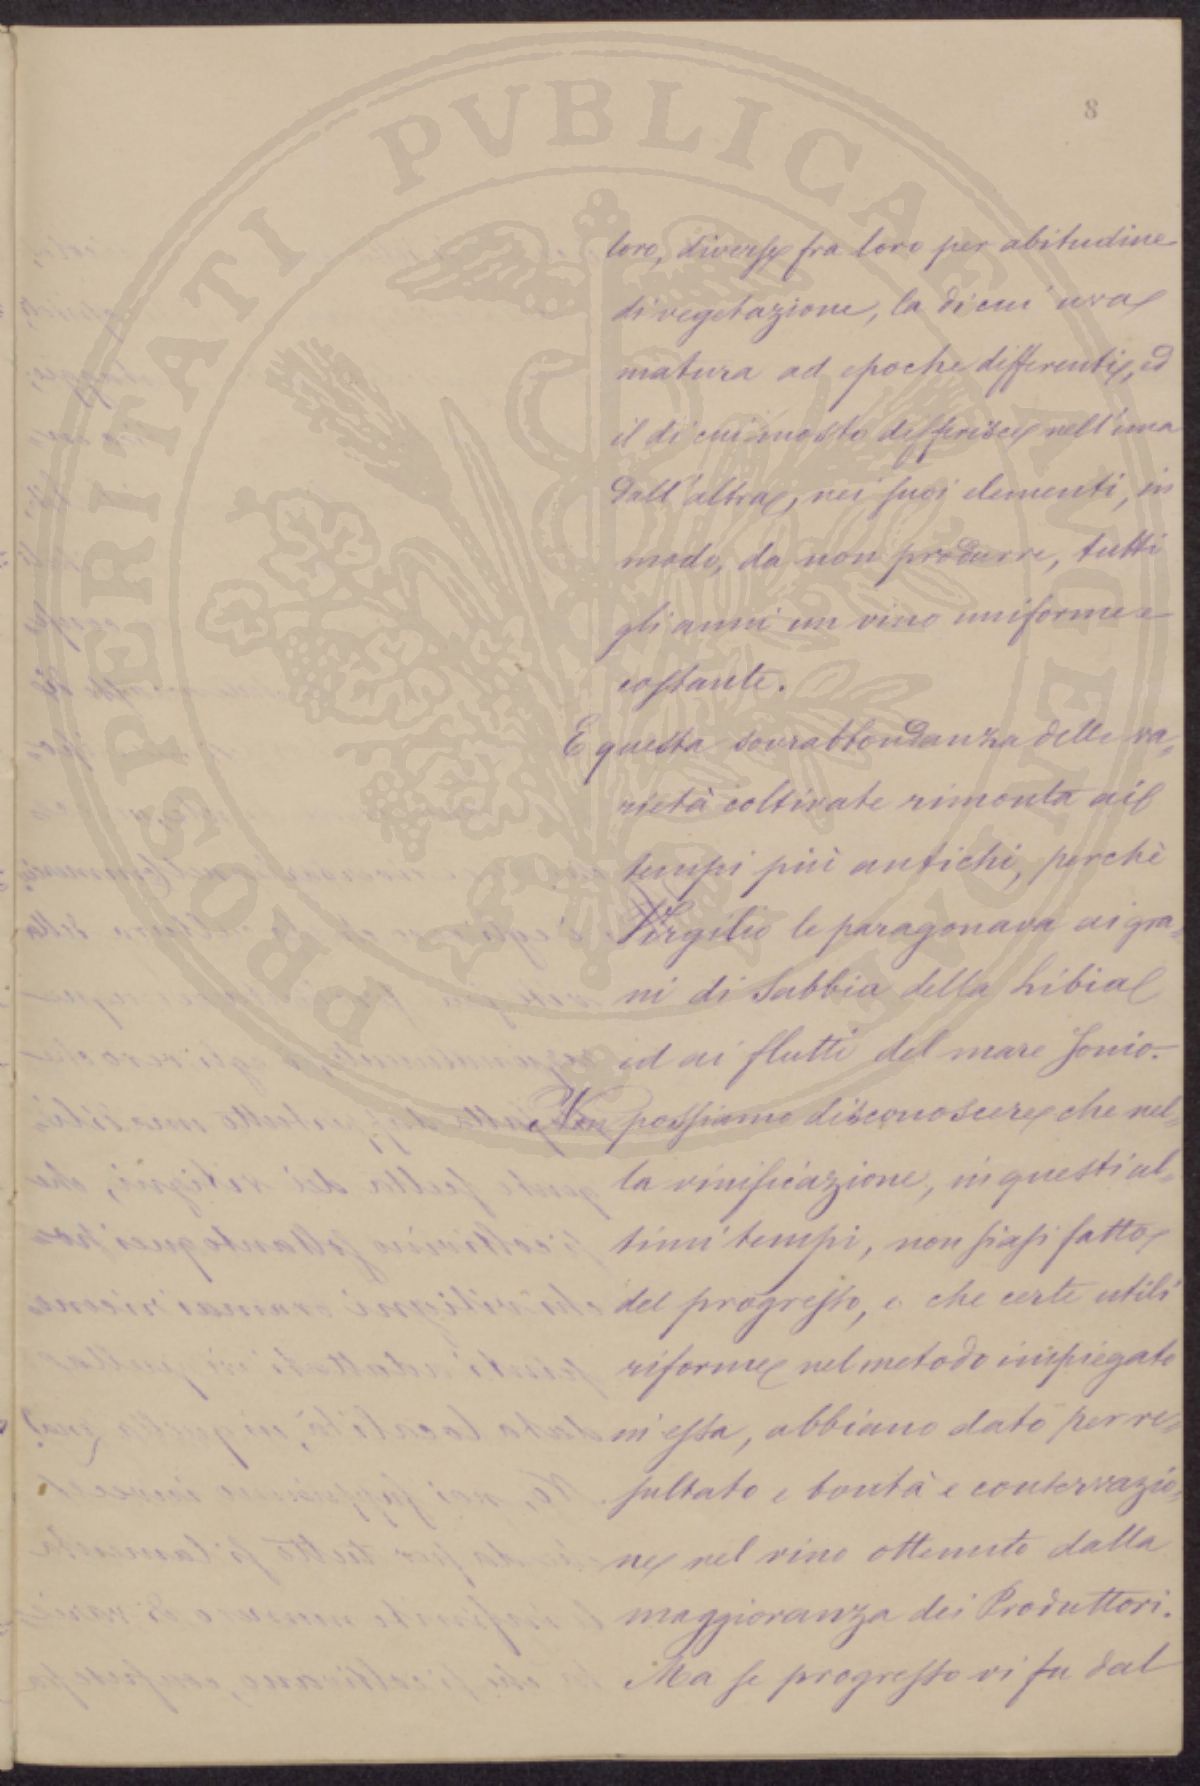 8
loro, diverse fra loro per abitudine
di vegetazione, la di cui uva
matura ad epoche differenti, ed
il di cui mosto differisce nell'una
dall'altra, nei suoi elementi, in
modo, da non produrre, tutti
gli anni un vino uniforme e
costante.
E questa sovrabbondanza delle va=
rietà coltivate rimonta ai
tempi più antichi, perchè
Virgilio le paragonava ai gra=
ni di Sabbia della Libia
ed ai flutti del mare Jonio.
Non possiamo disconoscere che nel=
la vinificazione, in questi ul=
timi tempi, non siasi fatto
del progresso, e che certe utili
riforme nel metodo impiegato
in essa, abbiano dato per re=
sultato e bontà e conservazio=
ne nel vino ottenuto dalla
maggioranza dei Produttori.
Ma se progresso vi fu dal
PROSPERITATI PVBLICAE AVGENDAE